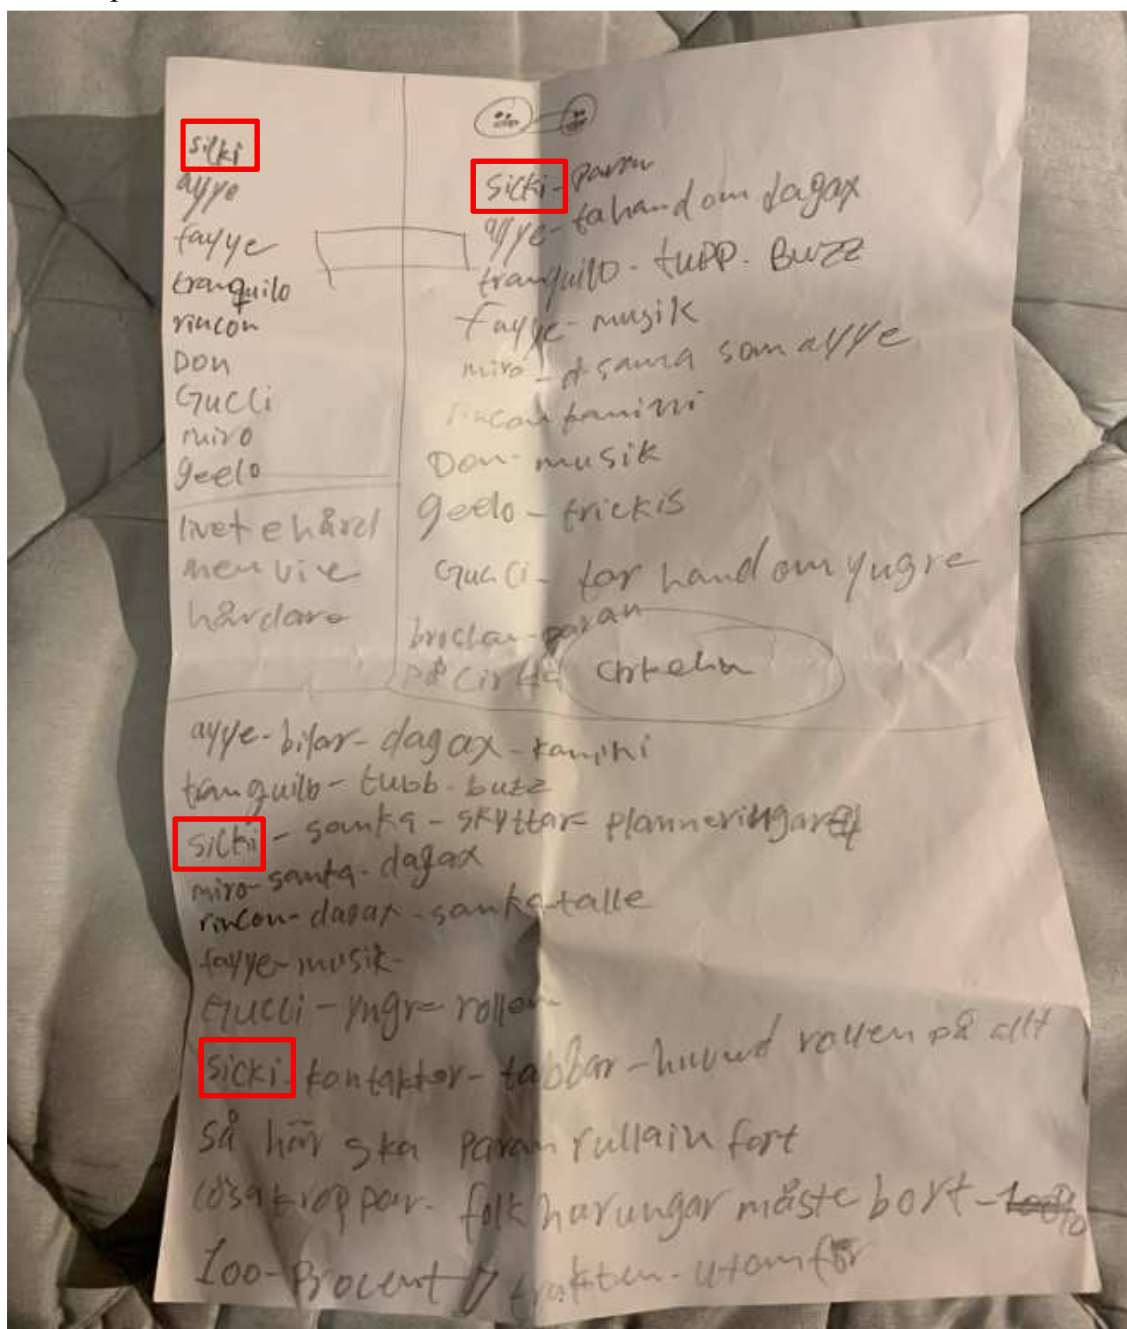 silki
ayye
fayye
tranquilo
rincon
Don
Gucci
miro
geelo
livet e hård
men vi e
hårdare
sicki - param
ayye - ta hand om dagax
tranquilo - tupp - Buzz
fayye - musik
miro - sama som ayye
rincon kaminni
Don - musik
geelo - frickis
Gucci - tar hand om yugre
paran
på cirkel cirkeln
ayye - bilar - dagax - kaminni
tranquilo - tubb - buzz
sicki - sanka - skyttar planneringar
miro - santa - dagax
rincon - dagax - sanka - talle
fayye - musik -
Gucci - yngre rollen -
sicki - kontakter - tabbar - huvud rollen på allt
så här ska paran rulla in fort
lösa kroppar - folk har ungar måste bort -
100 - procent trakten - utomför